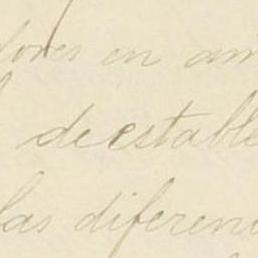 dores en am
de establ
las diferen